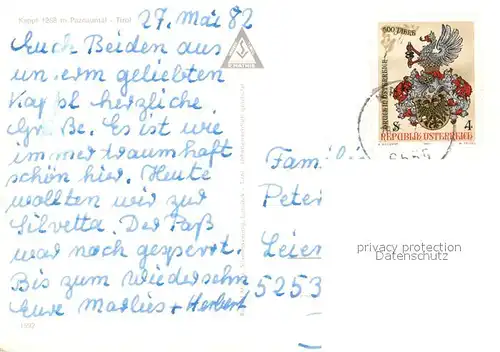 Kappl 1258 m Paznauntal - Tirol
27. Mai 82
Euch Beiden aus
unserm geliebten
Kappl herzliche
Grüße. Es ist wie
immer traumhaft
schön hier. Heute
wollten wir zur
Silvretta. Der Paß
war noch gesperrt.
Bis zum Wiedersehn
Eure Marlies + Herbert
500 JAHRE
DRUCK IN ÖSTERREICH
S 4
REPUBLIK ÖSTERREICH
Famili
Peter
Leien
5253
privacy protection
Datenschutz